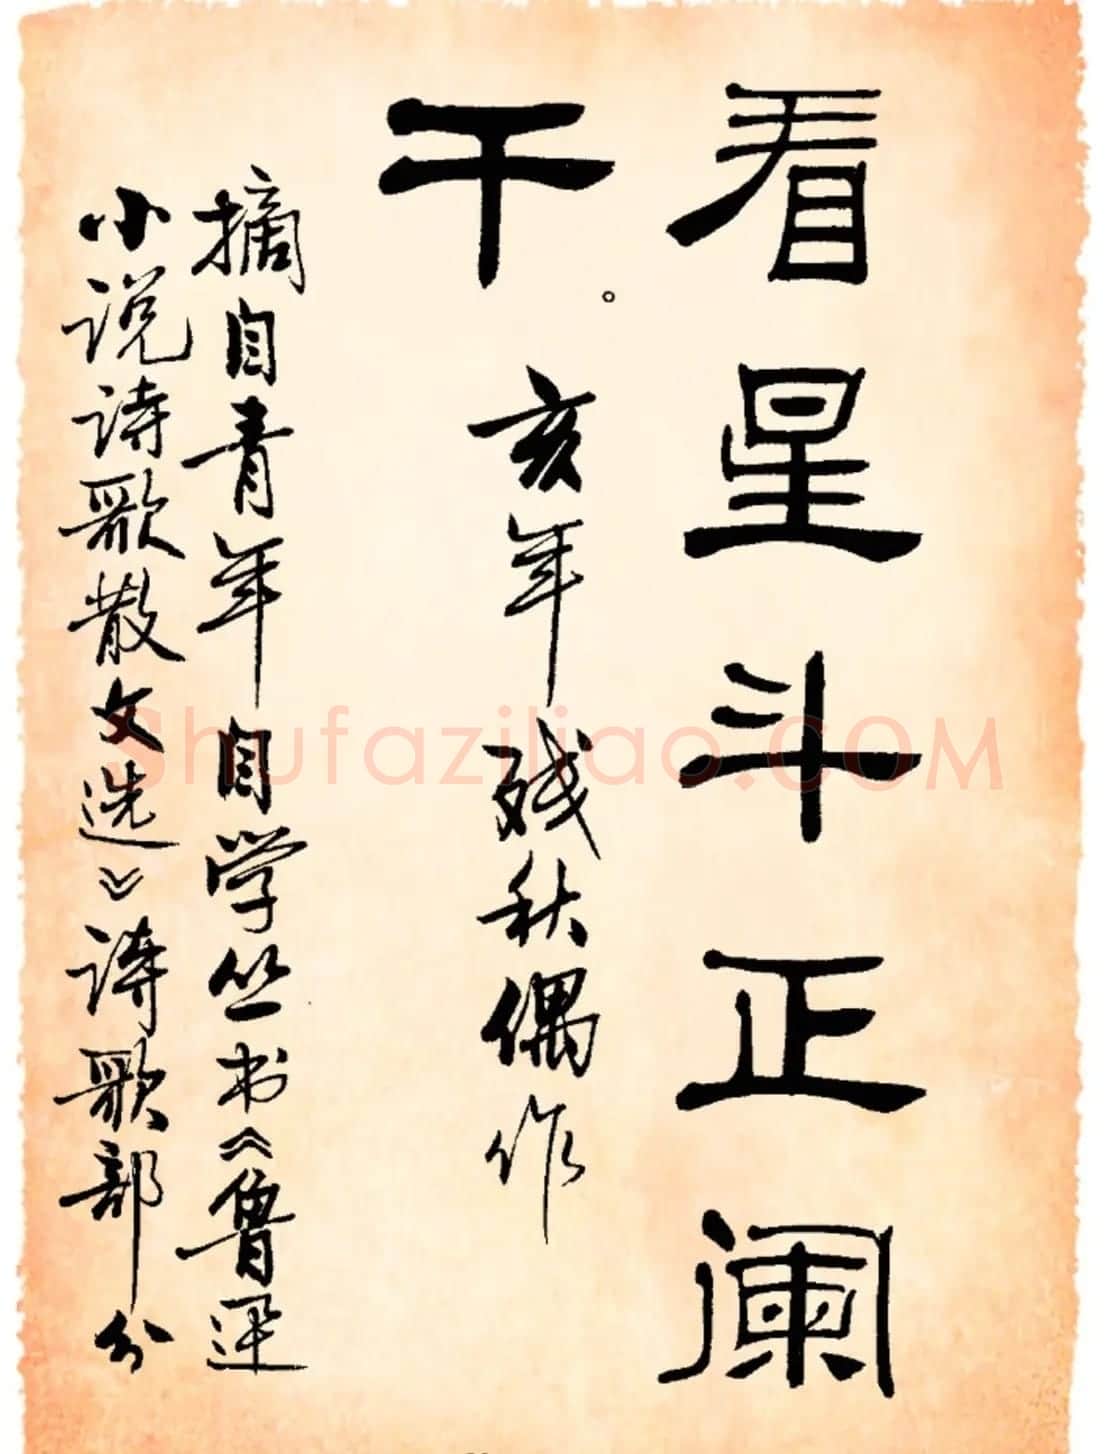 看星斗正阑
干。亥年残秋偶作
摘自青年自学丛书《鲁迅
小说诗歌散文选》诗歌部分
Shufaziliao.COM